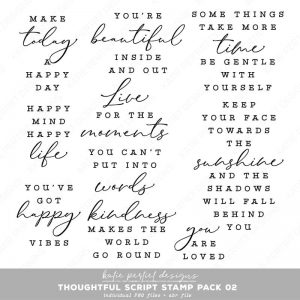 MAKE
today
A
HAPPY
DAY
HAPPY
MIND
HAPPY
life
YOU'VE
GOT
happy
VIBES
YOU'RE
beautiful
INSIDE
AND OUT
Live
FOR THE
moments
YOU CAN'T
PUT INTO
words
kindness
MAKES THE
WORLD
GO ROUND
SOME THINGS
TAKE MORE
time
BE GENTLE
WITH
YOURSELF
KEEP
YOUR FACE
TOWARDS
THE
sunshine
AND THE
SHADOWS
WILL FALL
BEHIND
YOU
you
ARE
LOVED
katie pertiet designs
THOUGHTFUL SCRIPT STAMP PACK 02
individual PNG files + abr file